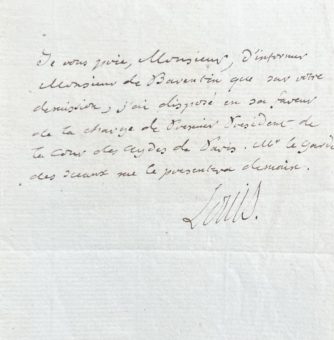 Je vous prie, Monsieur, d'informer
Monsieur de Barentin que sur votre
demission, j'ai disposé en sa faveur
de la charge de Premier President de
la Cour des Aydes de Paris. Mr le Garde
des sceaux me le presentera demain.
Louis.